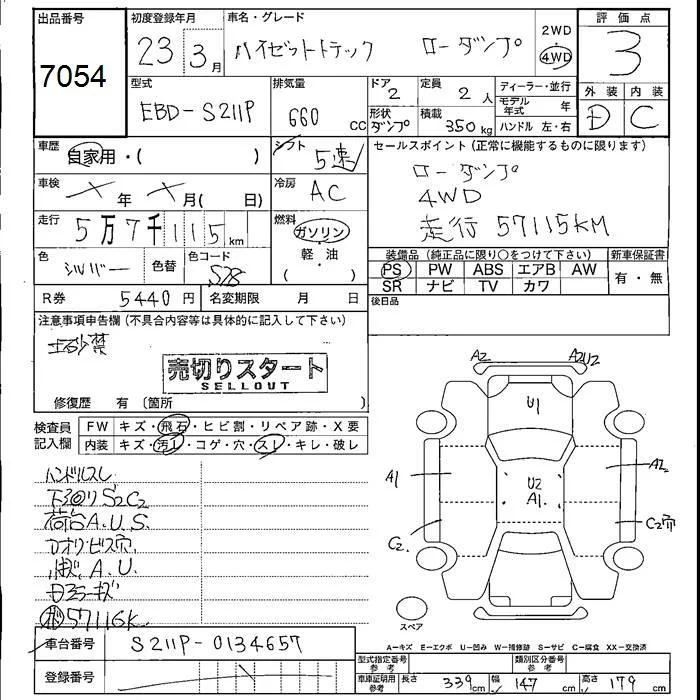 出品番号
7054
初度登録年月
23年3月
車名・グレード
ハイゼットトラック ローダンプ
2WD
4WD
評価点
3
型式
EBD-S211P
排気量
660 CC
ドア
2
定員
2人
形状
ダンプ
積載
350kg
ディーラー・並行
モデル年式 年
ハンドル 左・右
外装 内装
D C
車歴
自家用・( )
シフト
5速
車検
年 月( 日)
冷房
AC
走行
5万7千115km
燃料
ガソリン
軽油
( )
色
シルバー
色替
色コード
S28
R券
5440円
名変期限 月 日
セールスポイント(正常に機能するものに限ります)
ローダンプ
4WD
走行 57115KM
装備品(純正品に限り○をつけて下さい)
新車保証書
PS PW ABS エアB AW
SR ナビ TV カワ
有・無
後日品
注意事項申告欄(不具合内容等は具体的に記入して下さい)
土砂禁
売切りスタート
SELLOUT
修復歴 有 〔箇所 〕
検査員記入欄
FW キズ・飛石・ヒビ割・リペア跡・X要
内装 キズ・汚レ・コゲ・穴・スレ・キレ・破レ
ハンドルスレ
下回りS2C2
荷台A.U.S.
アオリ・ビス穴
A.U.
ミラーキズ
57116K
車台番号
S211P-0134657
登録番号
A2
A2U2
U1
A1
U2
A1.
A2
C2
C2穴
スペア
A-キズ E-エクボ U-凹み W-補修跡 S-サビ C-腐食 XX-交換済
型式指定番号 参考
類別区分番号 参考
車庫証明用 参考
長さ 339cm 幅 147cm 高さ 179cm